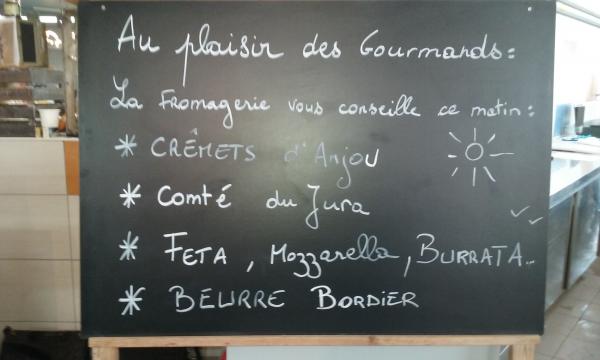 Au plaisir des Gourmands :
La Fromagerie vous conseille ce matin :
* CRÊMETS d'Anjou
* Comté du Jura
* FETA, Mozzarella, BURRATA...
* BEURRE BORDIER